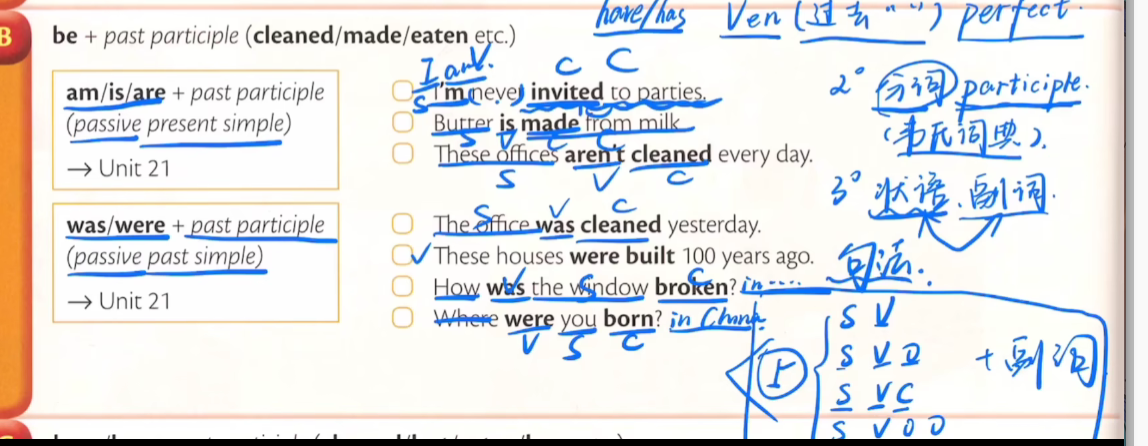 have/has Ven (过去“ ”) perfect.
B be + past participle (cleaned/made/eaten etc.)
I am V.
C C
am/is/are + past participle
(passive present simple)
→ Unit 21
I'm never invited to parties.
S
Butter is made from milk
S V C
These offices aren't cleaned every day.
S V C
2° 分词 participle.
(韦氏词典).
3° 状语、副词.
was/were + past participle
(passive past simple)
→ Unit 21
S V C
The office was cleaned yesterday.
These houses were built 100 years ago.
How was the window broken? in ....
V S C
Where were you born? in China.
V S C
句法.
5
S V
S V O
S V C
S V O O
+副词